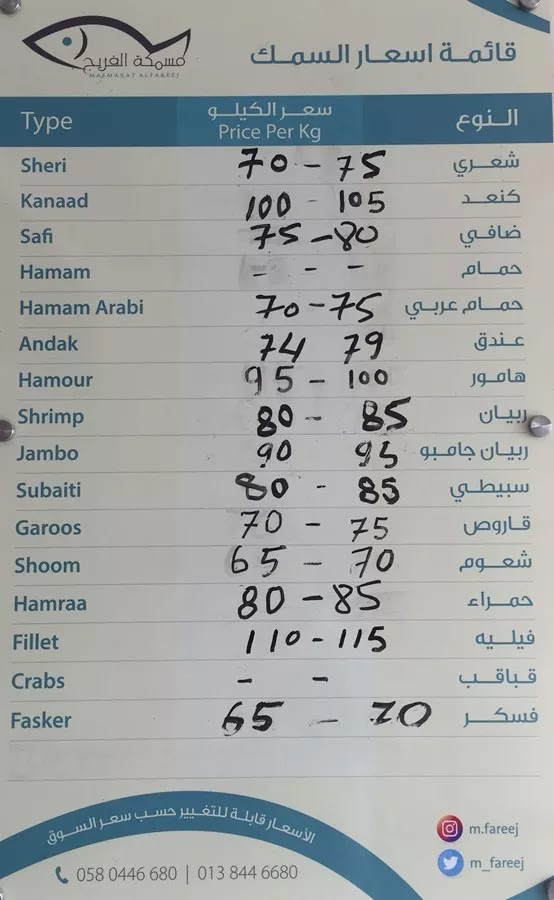 مسمكة الفريج
MASMAKAT ALFAREEJ
قائمة اسعار السمك
Type سعر الكيلو النوع
Price Per Kg
Sheri 70 - 75 شعري
Kanaad 100 - 105 كنعد
Safi 75 - 80 ضافي
Hamam - - - حمام
Hamam Arabi 70 - 75 حمام عربي
Andak 74 79 عندق
Hamour 95 - 100 هامور
Shrimp 80 - 85 ربيان
Jambo 90 95 ربيان جامبو
Subaiti 80 - 85 سبيطي
Garoos 70 - 75 قاروص
Shoom 65 - 70 شعوم
Hamraa 80 - 85 حمراء
Fillet 110 - 115 فيليه
Crabs - - قباقب
Fasker 65 - 70 فسكر
الأسعار قابلة للتغيير حسب سعر السوق
058 0446 680 | 013 844 6680
m.fareej
m_fareej